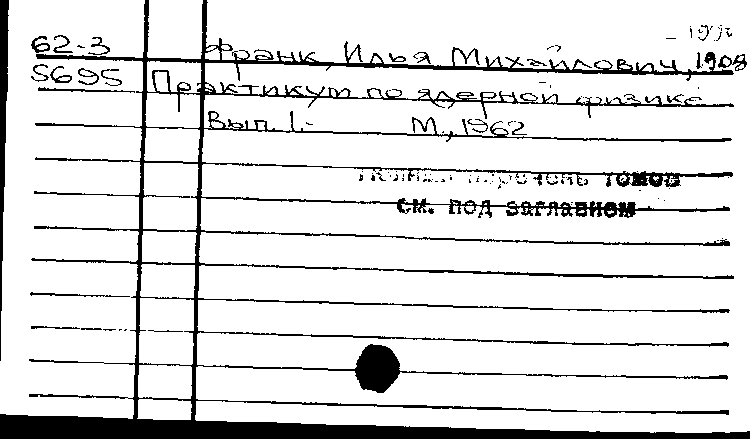 62-3 Франк, Илья Михайлович, 1908
5695 Практикум по ядерной физике
Вып. 1.- М., 1962
перечень томов
см. под заглавием